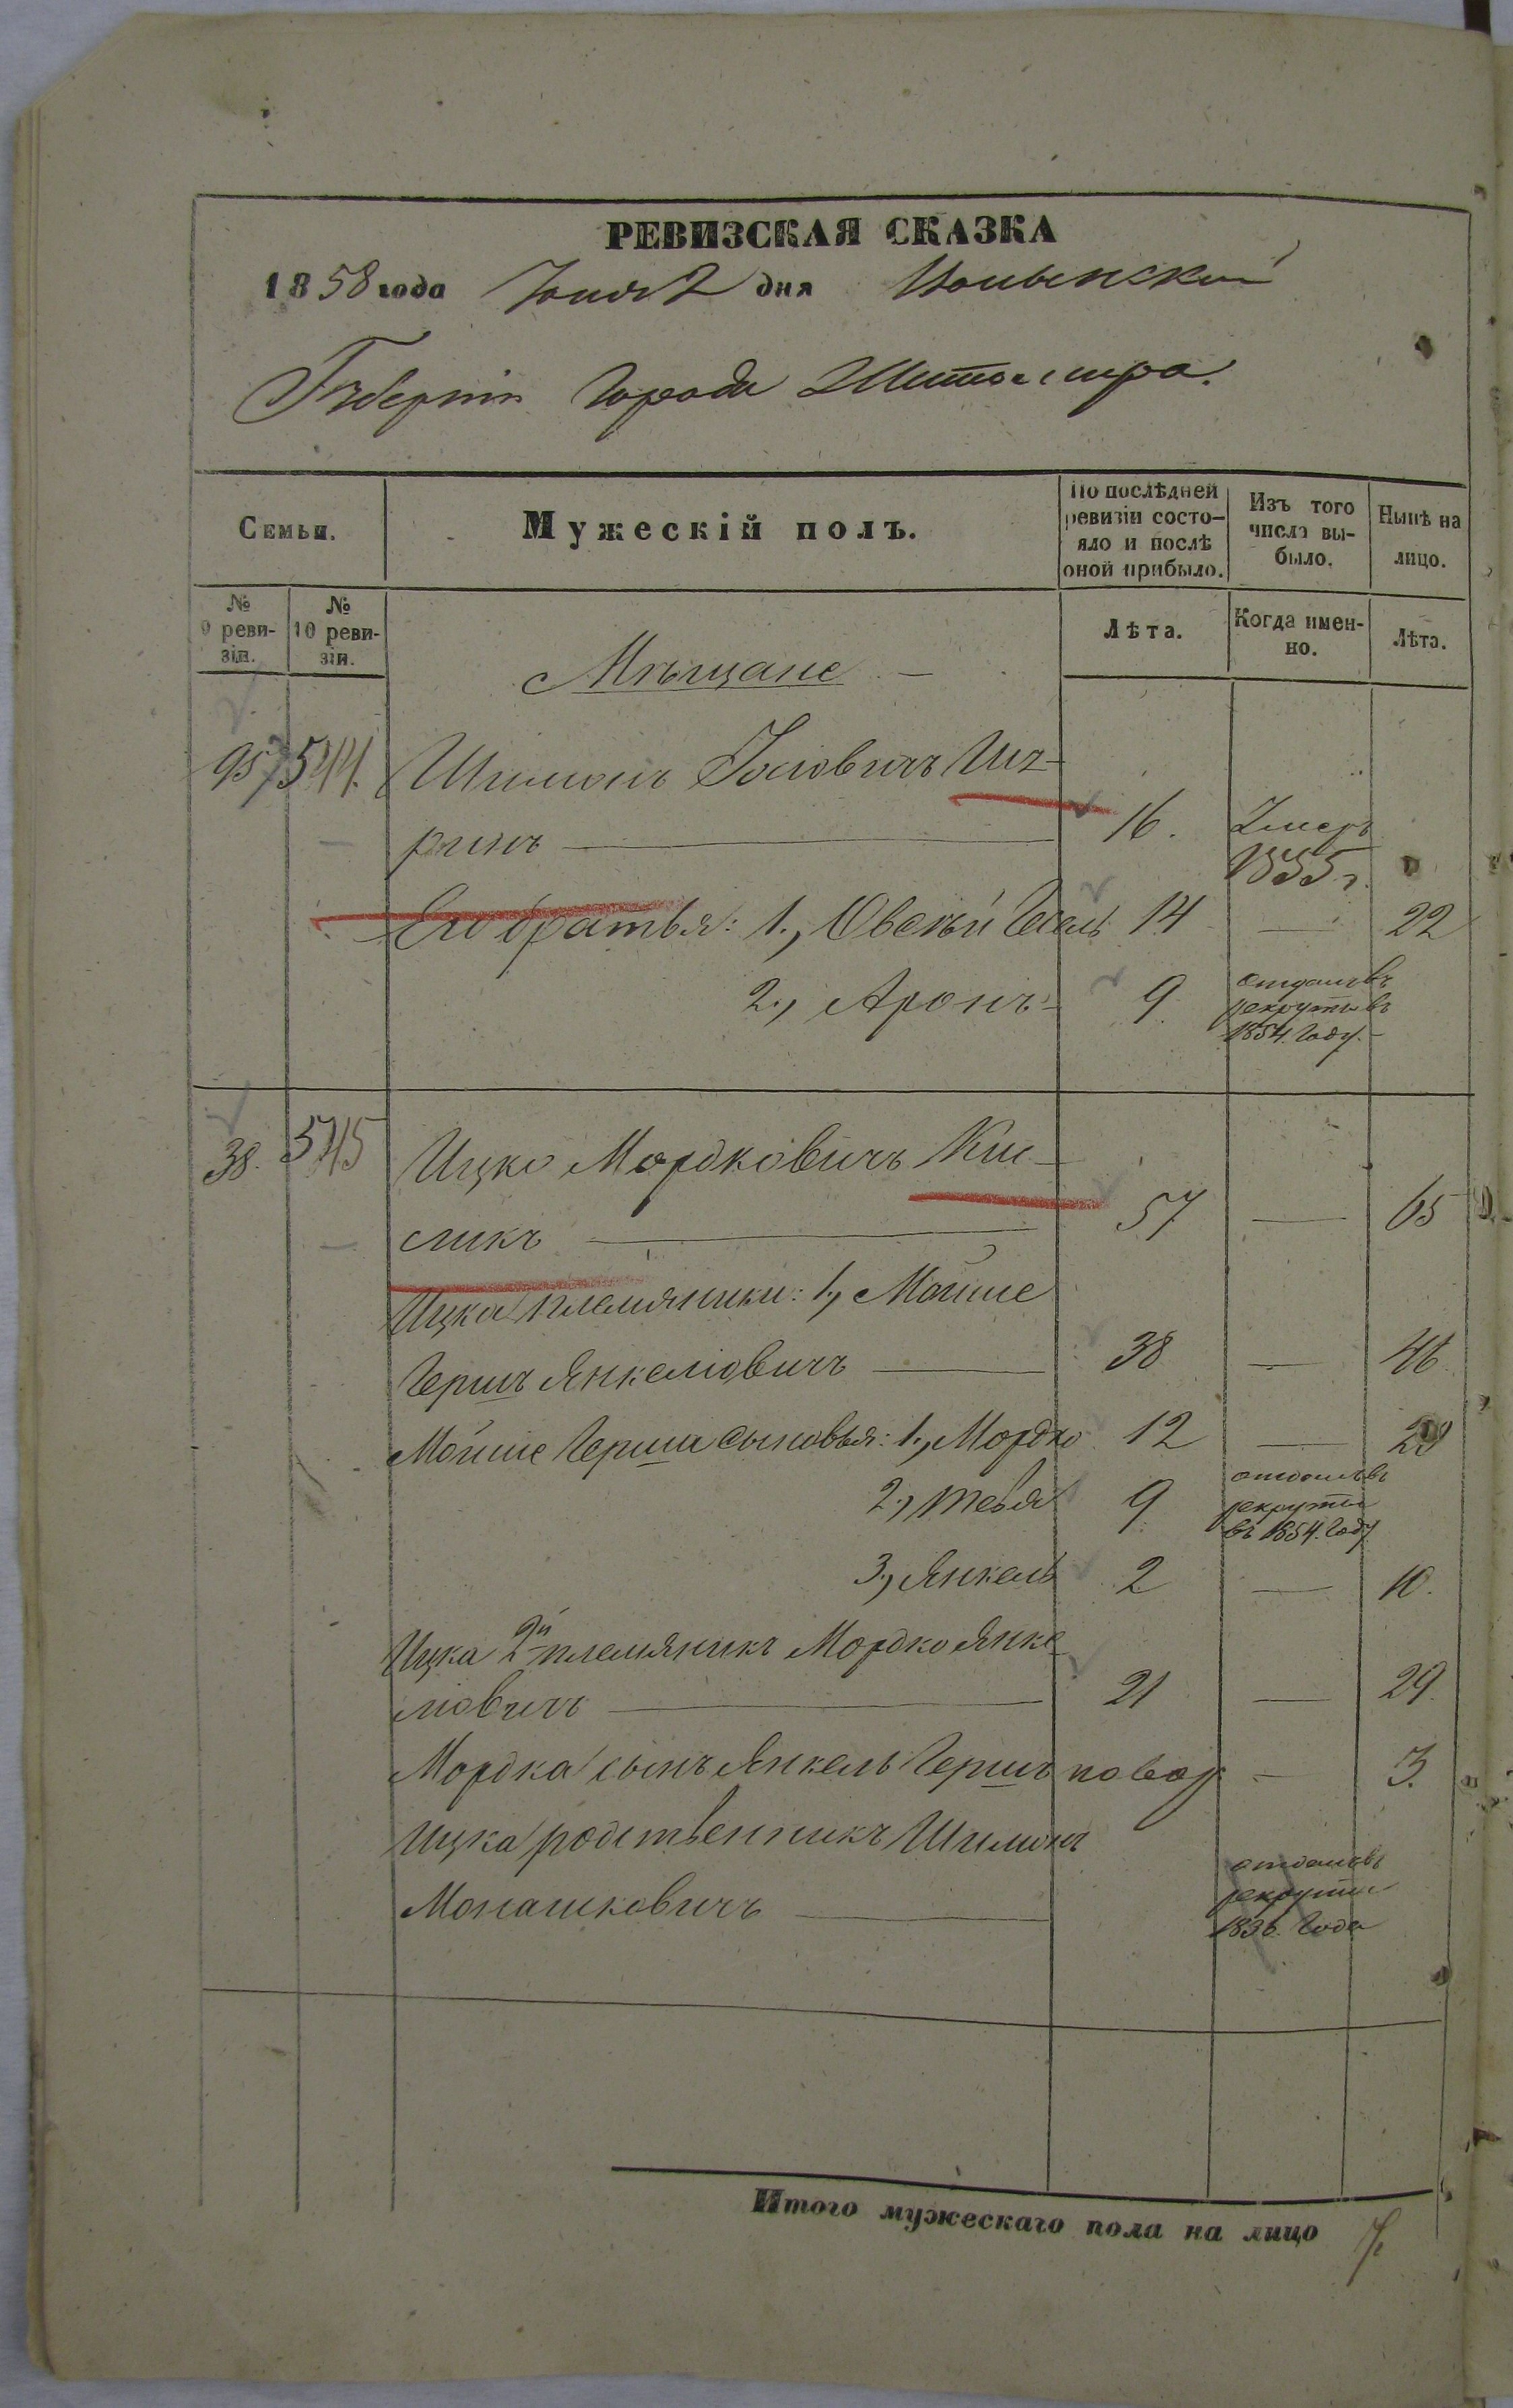 РЕВИЗСКАЯ СКАЗКА
1858 года Іюня 2 дня Волынской
Губерніи Города Житомира.
Семьи.
Мужескій полъ.
По послѣдней ревизіи состо-
яло и послѣ оной прибыло.
Изъ того числа вы-
было.
Нынѣ на лицо.
№ 9 реви-
зіи.
№ 10 реви-
зіи.
Лѣта.
Когда имен-
но.
Лѣта.
Мѣщане
957 544. Шимонъ Іосіовичъ
ринъ 16. Умеръ 1855 г.
Его братья: 1., Овсѣй 14 — 22
2., Аронъ 9 отданъ въ рекруты въ 1854. Году.
38. 545 Ицко Мордковичъ Кис-
ликъ 57 — 65
Ицка племяники: 1., Мойше
Гершъ Янкеліовичъ 38 — 46
Мойше Герша сыновья: 1., Мордко 12 — 20
2., Тевя 9 отданъ въ рекруты въ 1854. Году
3., Янкель 2 — 10.
Ицка 2й племяникъ Мордко Янке-
ліовичъ 21 — 29.
Мордка сынъ Янкель Гершъ новор — 3.
Ицка родственникъ Шимонъ
Монашковичъ отданъ въ рекруты 1836. Года
Итого мужескаго пола на лицо 7